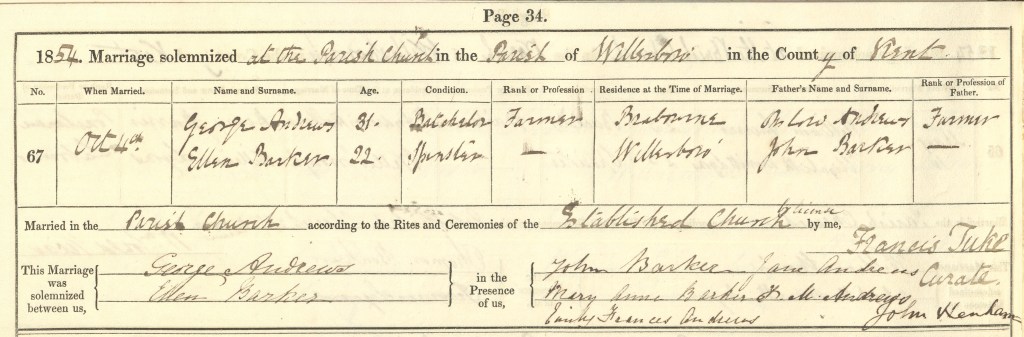 Page 34.
1854. Marriage solemnized at the Parish Church in the Parish of Willesboro' in the County of Kent
No. When Married. Name and Surname. Age. Condition. Rank or Profession. Residence at the Time of Marriage. Father's Name and Surname. Rank or Profession of Father.
67 Oct 4th George Andrews 31. Batchelor Farmer Brabourne Onslow Andrews Farmer
Ellen Barker 22. Spinster — Willesboro' John Barker —
Married in the Parish Church according to the Rites and Ceremonies of the Established Church by license by me,
Francis Tuke
Curate.
This Marriage was solemnized between us, George Andrews
Ellen Barker
in the Presence of us, John Barker Jane Andrews
Mary Anne Barker M. Andrews
Emily Frances Andrews John Henham